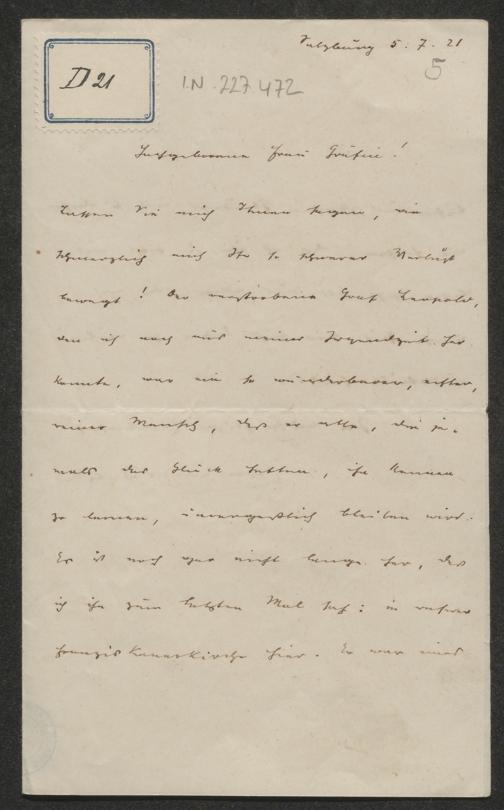 Salzburg 5. 7. 21
5
D 21
I.N. 227.472
Hochgeborene Frau Gräfin!
Lassen Sie mich Ihnen sagen, wie
schmerzlich mich Ihr so schwerer Verlust
bewegt! Der verstorbene Graf Leopold,
den ich noch aus meiner Jugendzeit her
kannte, war ein so wunderbarer, echter,
reiner Mensch, daß er allen, die je-
mals das Glück hatten, ihn kennen
zu lernen, unvergeßlich bleiben wird.
Es ist noch gar nicht lange her, daß
ich ihn zum letzten Mal sah: in unserer
Franziskanerkirche hier. Er war eines